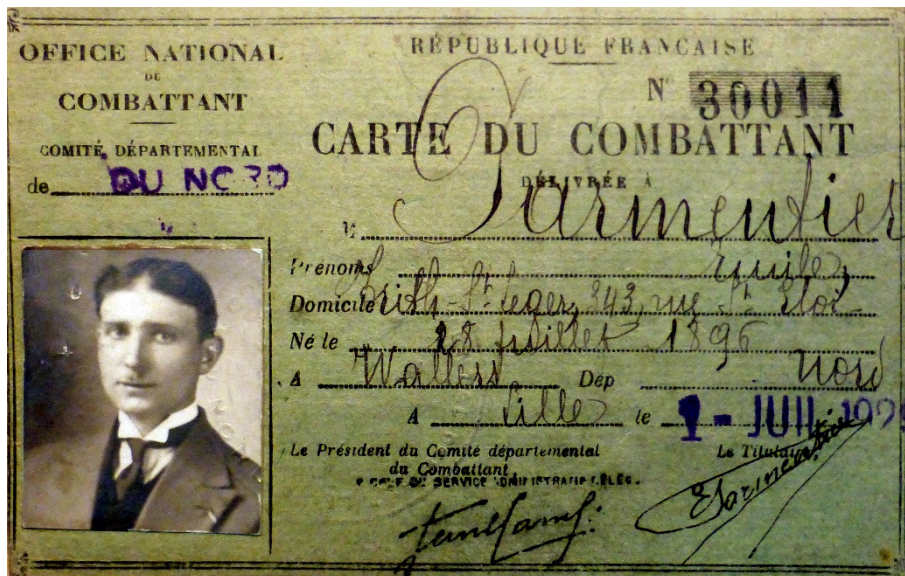 OFFICE NATIONAL
DU
COMBATTANT
COMITÉ DÉPARTEMENTAL
de DU NORD
RÉPUBLIQUE FRANÇAISE
N° 30011
CARTE DU COMBATTANT
DÉLIVRÉE À
M Parmentier
Prénoms Emile
Domicile Trith-St Leger, 343, rue St Eloi
Né le 28 Juillet 1896
A Wallers Dép Nord
A Lille le 1 - JUIL 192
Le Président du Comité départemental
du Combattant
Le Titulaire
E Parmentier